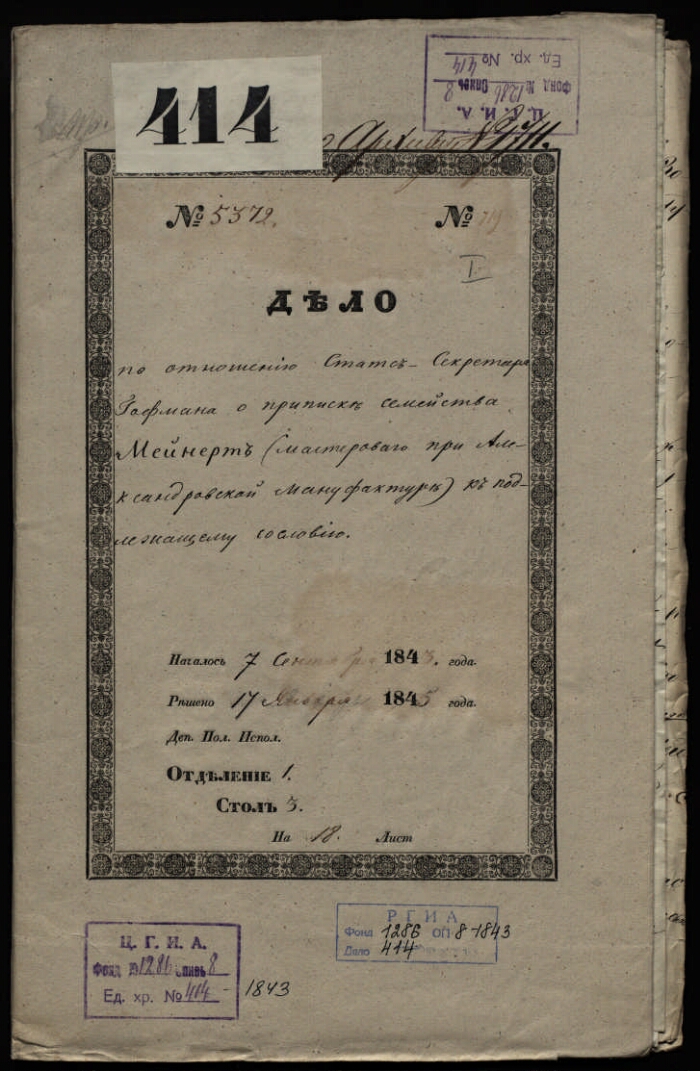 414
Ц. Г. И. А.
Фонд № 1286 Опись 8
Ед. хр. № 414
Архива
№ 5372.
№
I
ДѢЛО
по отношенію Статсъ-Секретаря
Гофмана о припискѣ семейства
Мейнертъ (мастероваго при Але-
ксандровской Мануфактурѣ) къ под-
лежащему сословію.
Началось 7 Сентября 1843. года.
Рѣшено 17 Января 1845 года.
Деп. Пол. Испол.
Отдѣленіе 1.
Столъ 3.
На 18. Лист
Р Г И А
Фонд 1286 ОП 8-1843
Дело 414
Ц. Г. И. А.
Фонд № 1286 Опись 8
Ед. хр. № 414
1843